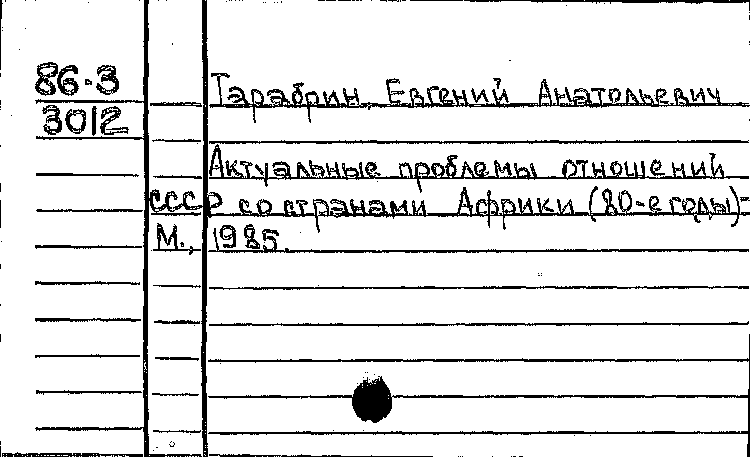 86-3
3012
Тарабрин, Евгений Анатольевич
Актуальные проблемы отношений
СССР со странами Африки (80-е годы)-
М., 1985.